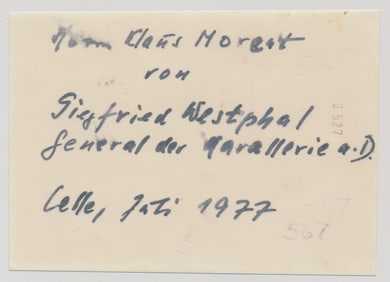 Herrn Klaus Morgat
von
Siegfried Westphal
General der Kavallerie a.D.
Celle, Juli 1977
567
0527